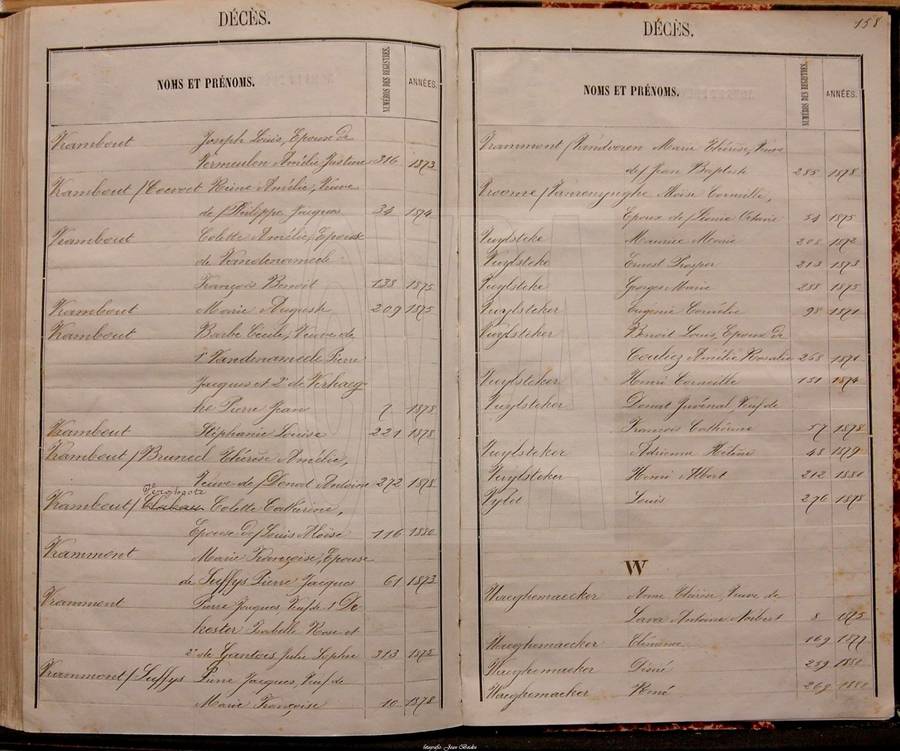 DÉCÈS.
NOMS ET PRÉNOMS. NUMÉROS DES REGISTRES. ANNÉES.
Vrambout Joseph Louis, Epoux de
Vermeulen Amélie Justine 316 1873
Vrambout / Coevoet Reine Amélie, Veuve
de / Philippe Jacques 34 1874
Vrambout Colette Amélie, Epouse
de Vandenameele
François Benoit 138 1875
Vrambout Marie Auguste 209 1875
Vrambout Barbe Cécile, Veuve de
1° Vandenameele Pierre
Jacques et 2° de Verhaeg-
he Pierre Jean 7 1878
Vrambout Stéphanie Louise 221 1878
Vrambout / Bruneel Thérèse Amélie,
Veuve de / Donat Antoine 272 1878
Vrambout / Colette Catherine,
Epouse de / Louis Aloïse 116 1880
Vrammont Marie Françoise, Epouse
de Seffys Pierre Jacques 61 1873
Vrammont Pierre Jacques Veuf de 1° De
kester Isabelle Rose et
2° de Gantois Julie Sophie 313 1878
Vrammont / Seffys Pierre Jacques, Veuf de
Marie Françoise 10 1878
DÉCÈS. 158
NOMS ET PRÉNOMS. NUMÉROS DES REGISTRES. ANNÉES.
Vrammont / Vandvoren Marie Thérèse, Veuve
de / Jean Baptiste 285 1878
Vroome / Vanrenynghe Moïse Corneille,
Epoux de / Octavie 54 1875
Vuylsteke Maurice Marie 206 1872
Vuylsteke Ernest Prosper 213 1873
Vuylsteke Georges Marie 288 1875
Vuylsteker Eugénie Cornélie 98 1871
Vuylsteker Benoit Louis, Epoux de
Couliez Amélie Rosalie 268 1871
Vuylsteker Henri Corneille 151 1874
Vuylsteker Donat Juvénal Veuf de
Francois Cathérine 57 1878
Vuylsteker Adrienne Hélène 48 1879
Vuylsteker Henri Albert 212 1880
Vylie Louis 276 1878
W
Waeghemaecker Anne Thérèse, Veuve de
Lava Antoine Norbert 8 1875
Waeghemaecker Clémence 169 1877
Waeghemaecker Désiré 259 1880
Waeghemaecker René 269 1880
fotografie Jean Backx